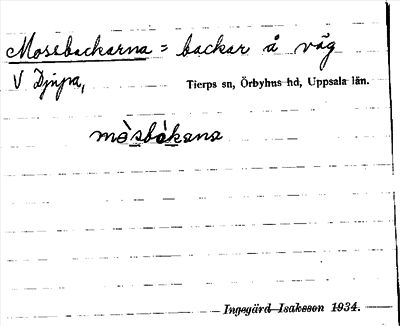 Mossbackarna = backar å väg
V Djupa, Tierps sn, Örbyhus hd, Uppsala län.
mòsbàkana
Ingegärd Isakeson 1934.